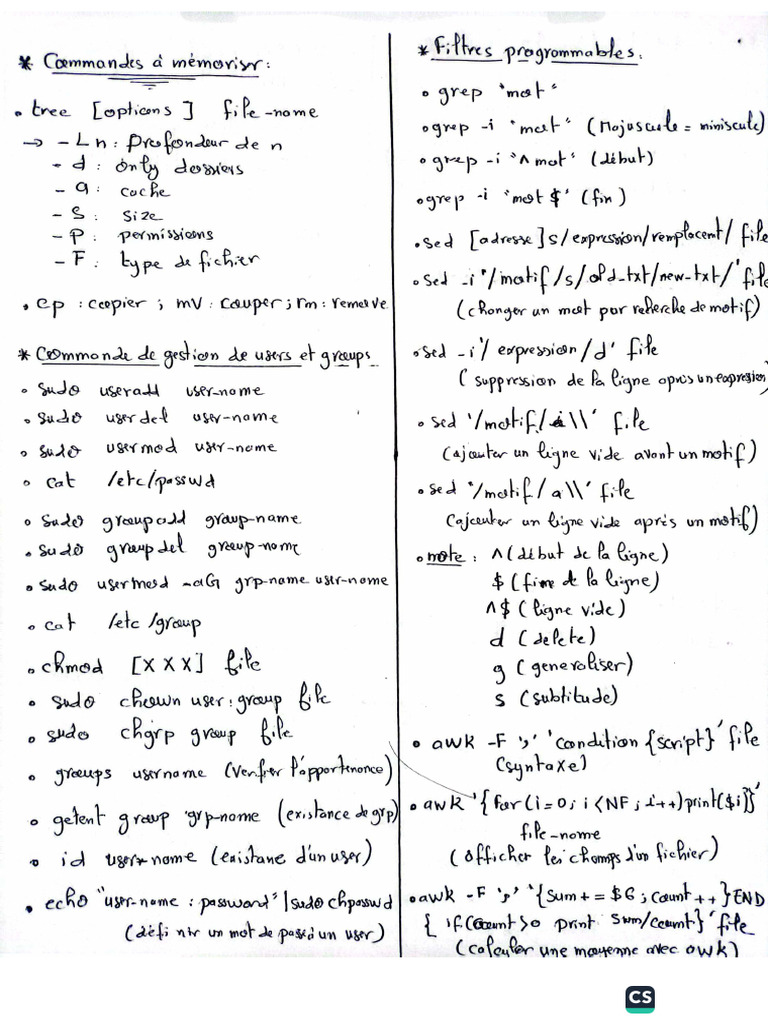 * Commandes à mémoriser :
• tree [options] file-name
→ - L n : Profondeur de n
- d : only dossiers
- a : cache
- S : size
- P : permissions
- F : type de fichier
• cp : copier ; mv : couper ; rm : remove
* Commande de gestion de users et groups
• sudo useradd user-name
• sudo userdel user-name
• sudo usermod user-name
• cat /etc/passwd
• sudo groupadd group-name
• sudo groupdel group-name
• sudo usermod -aG grp-name user-name
• cat /etc/group
• chmod [X X X] file
• sudo chown user:group file
• sudo chgrp group file
• groups username (vérifier l'appartenance)
• getent group grp-name (existance de grp)
• id user-name (existane d'un user)
• echo "user-name : password" | sudo chpasswd
(défi nir un mot de passe à un user)
* Filtres programmables :
• grep "mot"
• grep -i "mot" (Majuscule = miniscule)
• grep -i "^ mot" (début)
• grep -i "mot $" (fin)
• sed [adresse] s/expression/remplacent/ file
• sed -i '/motif/s/old_txt/new_txt/' file
(changer un mot par recherche de motif)
• sed -i '/ expression/d' file
(suppression de la ligne après un expression)
• sed '/motif/i\\' file
(ajouter un ligne vide avant un motif)
• sed '/motif/a\\' file
(ajouter un ligne vide après un motif)
• note : ^ (début de la ligne)
$ (fin de la ligne)
^$ (ligne vide)
d (delete)
g (generaliser)
s (subtitude)
• awk -F ',' 'condition {script}' file
(syntaxe)
• awk '{for(i=0; i<NF; i++)print($i)}'
file-name
(afficher les champs d'un fichier)
• awk -F ',' '{sum+=$6; count++}END
{ if(count>0 print sum/count}' file
(calculer une moyenne avec awk)
CS